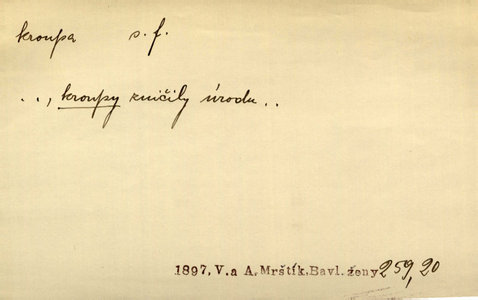 kroupa s. f.
..., kroupy zničily úrodu..
1897, V. a A. Mrštík, Bavl. ženy 259, 20